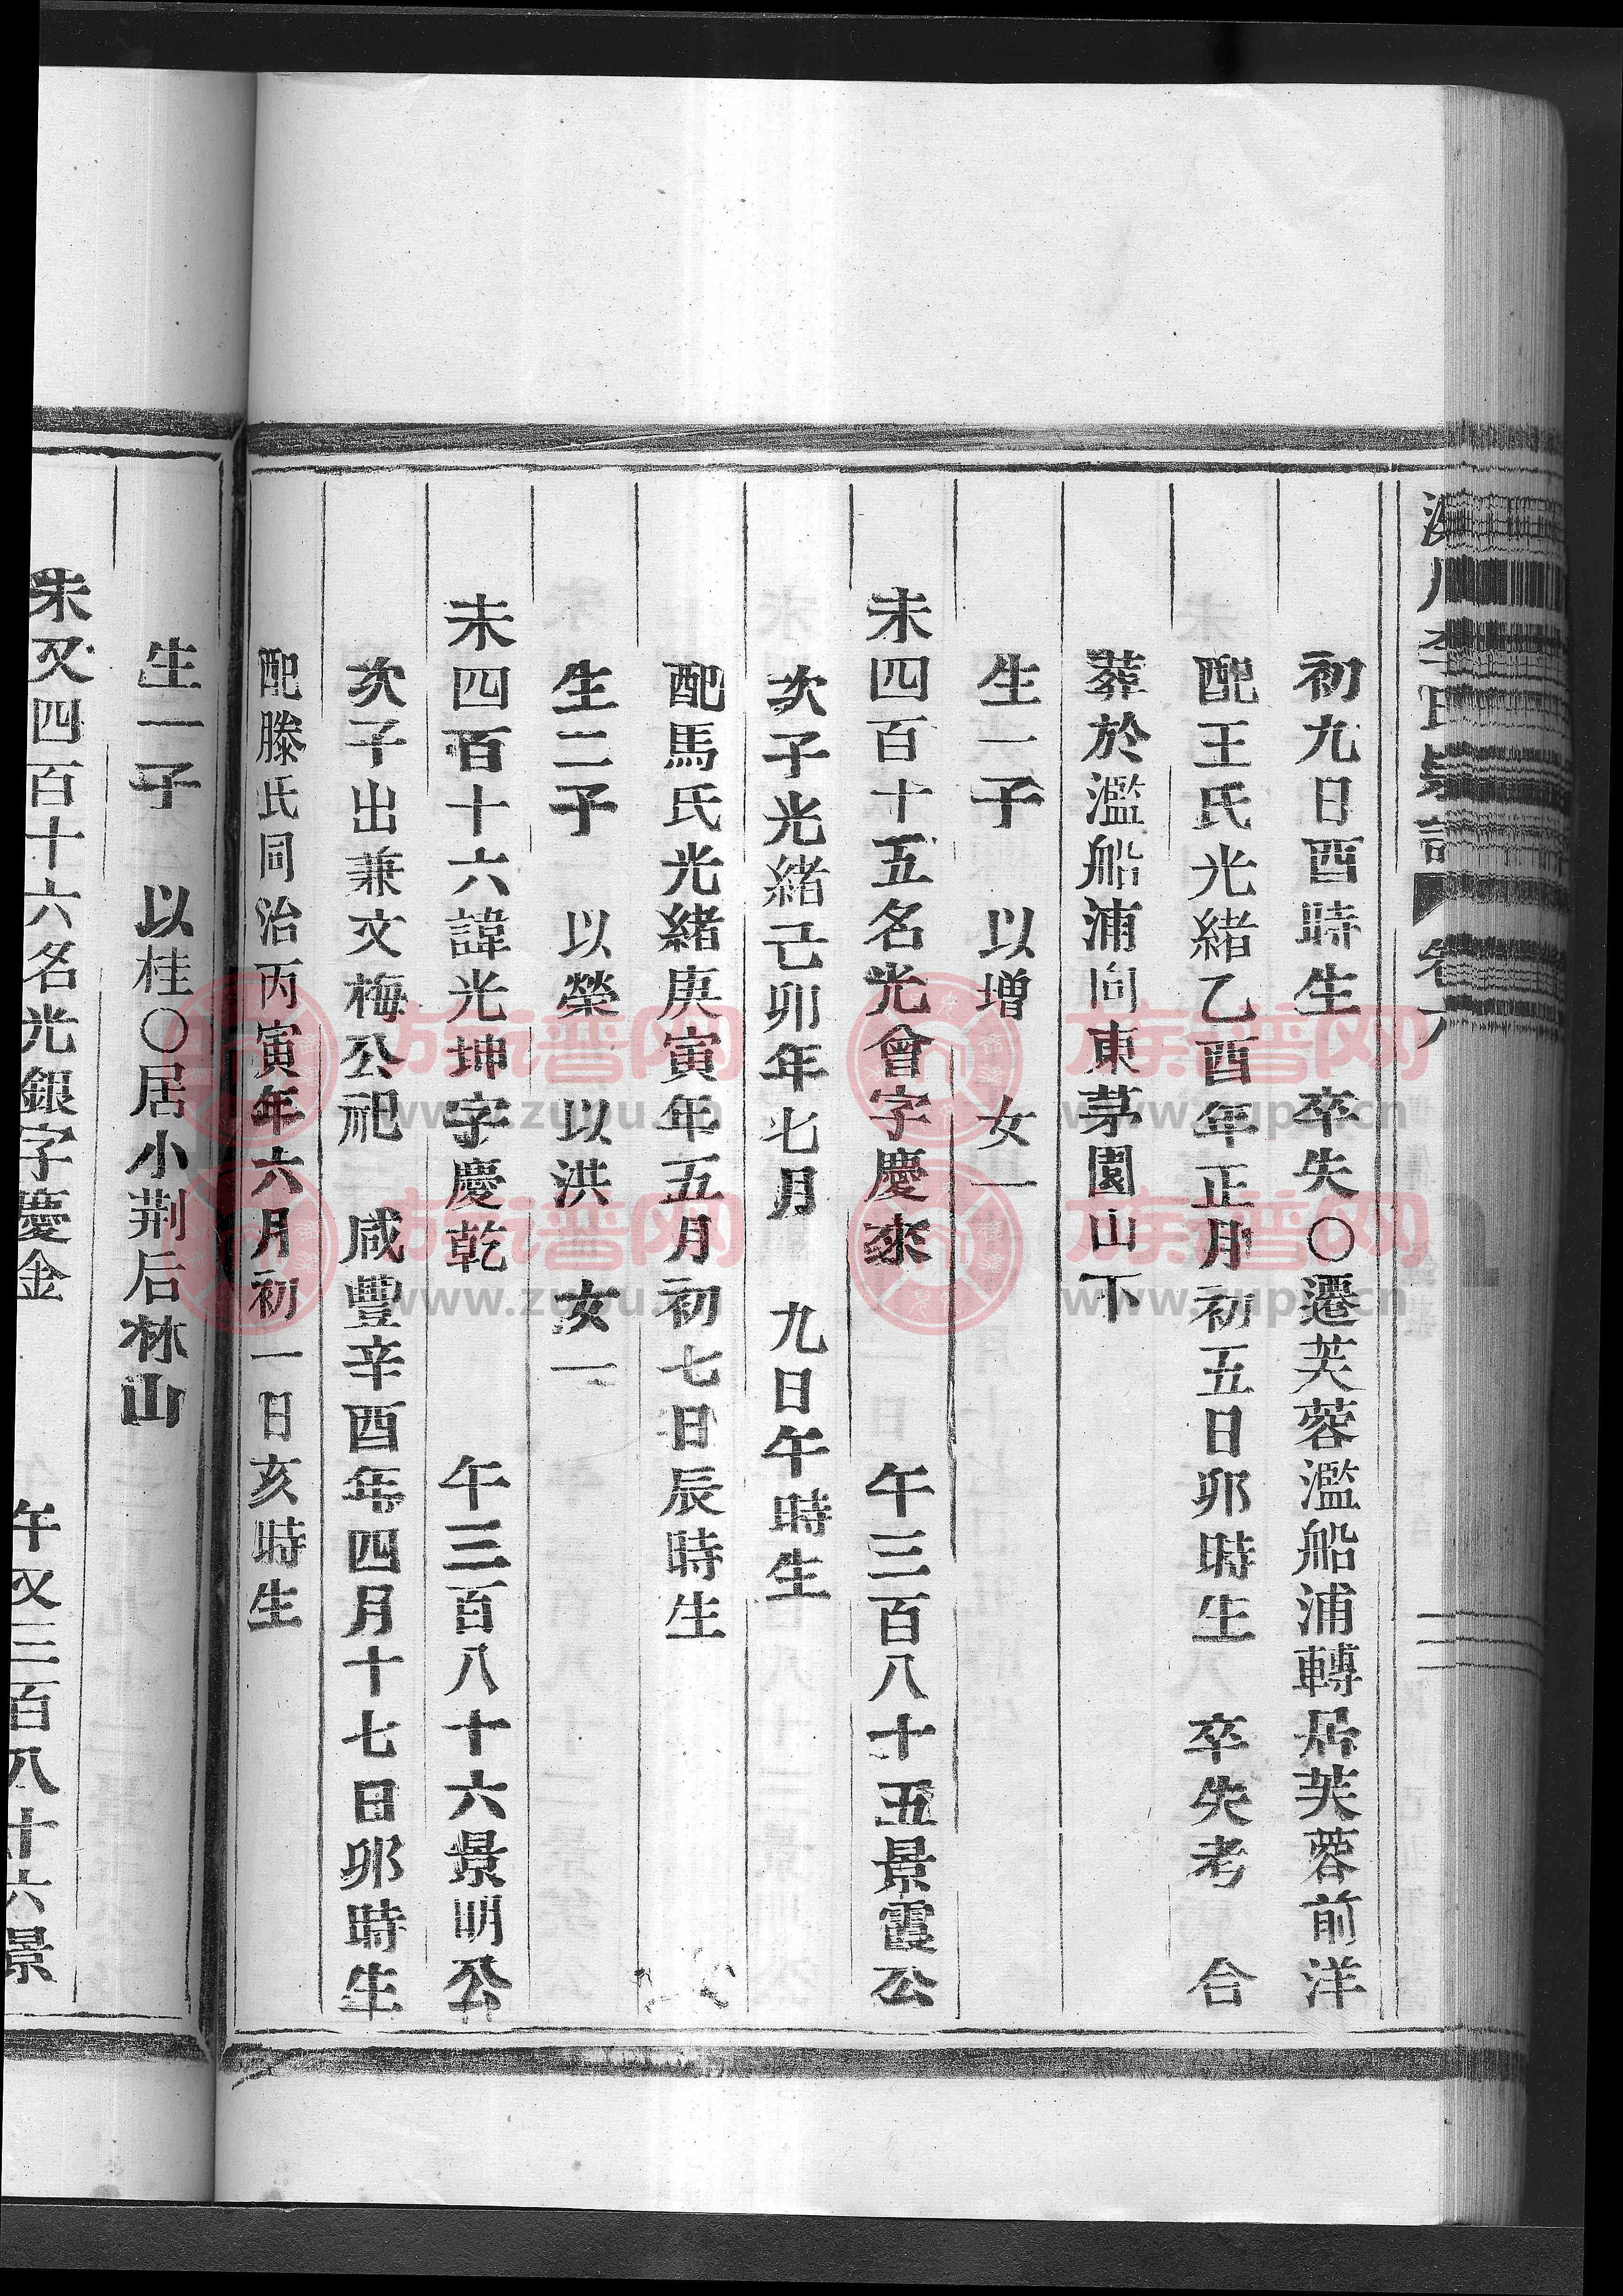 初九日酉時生 卒失〇遷芙蓉濫船浦轉居芙蓉前洋
配王氏光緒乙酉年正月初五日卯時生 卒失考 合
葬於濫船浦向東茅園山下
生一子 以增 女一
未四百十五名光會字慶來 午三百八十五景霞公
次子光緒己卯年七月 九日午時生
配馬氏光緒庚寅年五月初七日辰時生
生二子 以榮 以洪 女一
未四百十六諱光坤字慶乾 午三百八十六景明公
次子出兼文梅公祀 咸豐辛酉年四月十七日卯時生
配滕氏同治丙寅年六月初一日亥時生
生一子 以桂〇居小荆后林山
未又四百十六名光銀字慶金 午又三百八十六景
族谱网
www.zupu.cn
族谱网
www.zupu.cn
族谱网
www.zupu.cn
族谱网
www.zupu.cn